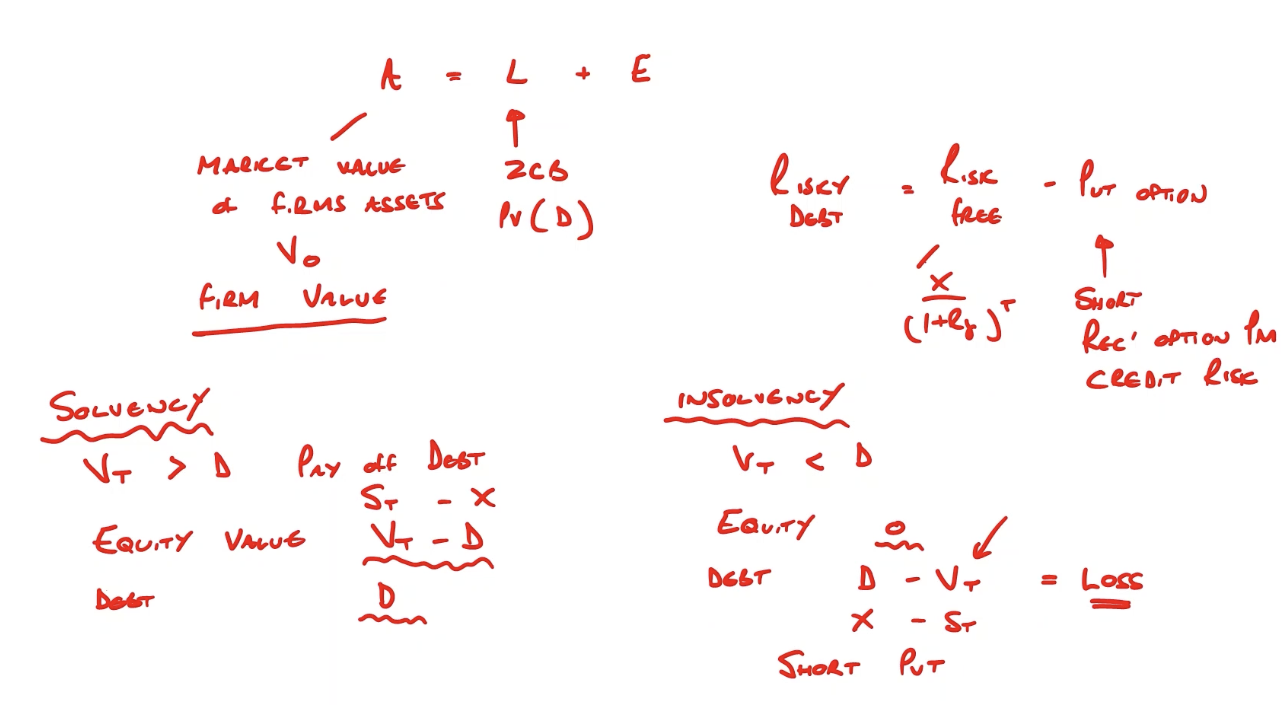 A = L + E
MARKET VALUE
of FIRMS ASSETS
V₀
FIRM VALUE
ZCB
PV(D)
RISKY DEBT = RISK FREE - PUT OPTION
X
(1+Rf)^T
SHORT
REC' OPTION PM
CREDIT RISK
SOLVENCY
V_T > D PAY off DEBT
S_T - X
EQUITY VALUE V_T - D
DEBT D
INSOLVENCY
V_T < D
EQUITY 0
DEBT D - V_T = LOSS
X - S_T
SHORT PUT